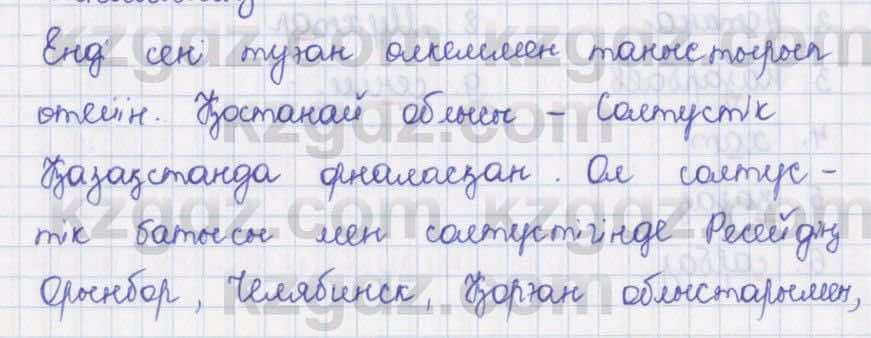 Енді сені туған өлкеммен таныстырып
өтейін. Қостанай облысы – Солтустік
Қазақстанда орналасқан. Ол солтүс-
тік батысы мен солтүстігінде Ресейдің
Орынбор, Челябинск, Қорған облыстарымен,
kzgdz.com